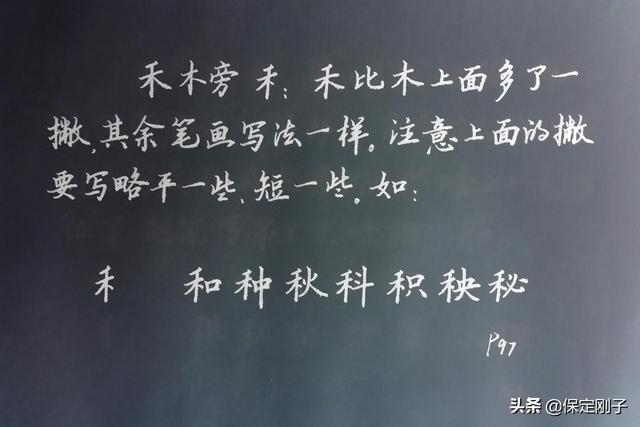 禾木旁 禾：禾比木上面多了一
撇，其余笔画写法一样。注意上面的撇
要写略平一些、短一些。如：
禾 和种秋科积秧秘
P97
头条 @保定刚子